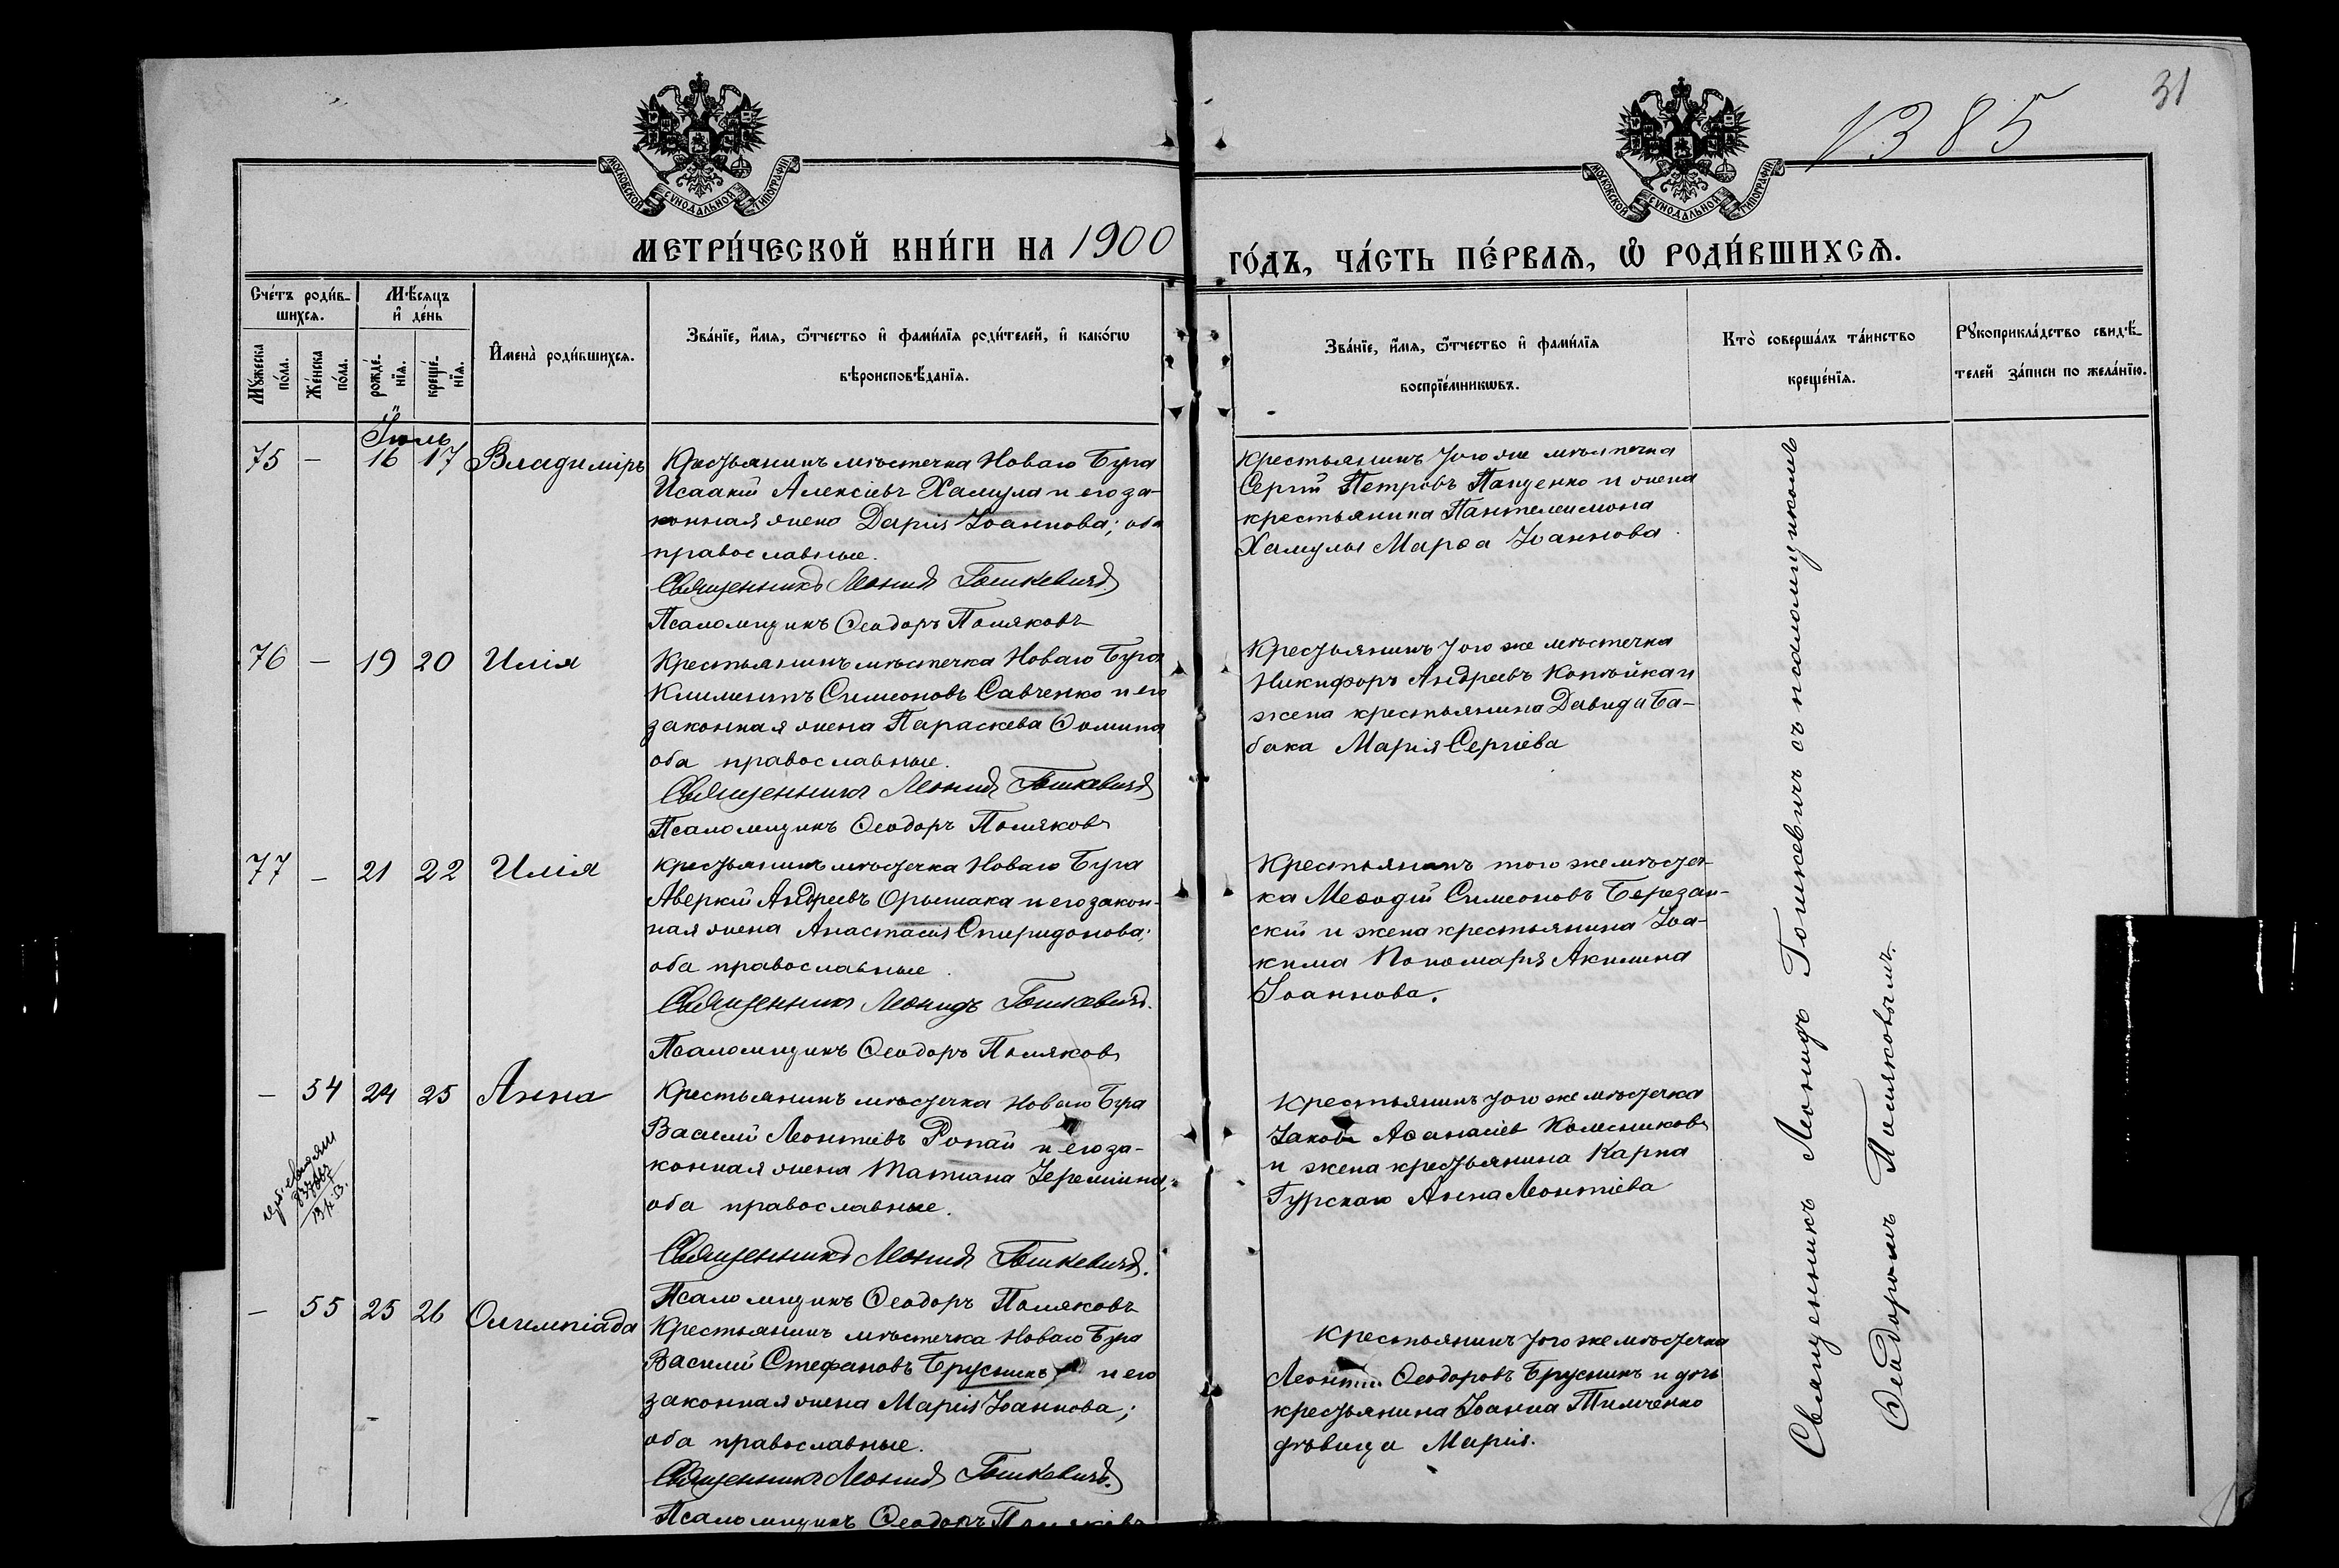 31
1385
МОСКОВСКОЙ СУНОДАЛЬНОЙ ТИПОГРАФІИ
МОСКОВСКОЙ СУНОДАЛЬНОЙ ТИПОГРАФІИ
МЕТРИ́ЧЕСКОЙ КНИ́ГИ НА 1900 ГО́ДЪ, ЧА́СТЬ ПЕ́РВАѦ, Ѡ РОДИ́ВШИХСѦ.
Сче́тъ роди́в-
шихсѧ.
Мꙋ́жеска по́ла.
Же́нска по́ла.
Мѣ́сѧцъ
и҆ де́нь
рожде́-нїѧ.
креще́-нїѧ.
И҆мена̀ роди́вшихсѧ.
Зва́нїе, и҆́мѧ, ѻ҆́тчество и҆ фами́лїѧ роди́телей, и҆ како́гѡ
вѣроисповѣ́данїѧ.
Зва́нїе, и҆́мѧ, ѻ҆́тчество и҆ фами́лїѧ
воспрїе́мникѡвъ.
Кто̀ соверша́лъ та́инство
креще́нїѧ.
Рꙋкоприкла́дство свидѣ́-
телей за́писи по жела́нїю.
Іюль
75 — 16 17 Владиміръ
Крестьянинъ мѣстечка Новаго Буга
Исаакій Алексіевъ Хамула и его за-
конная жена Дарія Іоаннова; оба
православные.
Священникъ Леонидъ Гошкевичъ.
Псаломщикъ Ѳеодоръ Поляковъ
Крестьянинъ того же мѣстечка
Сергій Петровъ Пащенко и жена
крестьянина Пантелеимона
Хамулы Марѳа Іоаннова.
76 — 19 20 Илія
Крестьянинъ мѣстечка Новаго Буга
Климентъ Симеоновъ Савченко и его
законная жена Параскева Ѳомина
оба православные.
Священникъ Леонидъ Гошкевичъ
Псаломщикъ Ѳеодоръ Поляковъ
Крестьянинъ того же мѣстечка
Никифоръ Андреевъ Копѣйка и
жена крестьянина Давида Ба-
бака Марія Сергіева
77 — 21 22 Илія
Крестьянинъ мѣстечка Новаго Буга
Аверкій Андреевъ Орышака и его закон-
ная жена Анастасія Спиридонова;
оба православные.
Священникъ Леонидъ Гошкевичъ.
Псаломщикъ Ѳеодоръ Поляковъ
Крестьянинъ того же мѣстеч-
ка Меѳодій Симеоновъ Березан-
скій и жена крестьянина Іоа-
кима Пономаря Акилина
Іоаннова.
— 54 24 25 Анна
Крестьянинъ мѣстечка Новаго Буга
Василій Леонтіевъ Ропай и его за-
конная жена Татіана Іереміина;
оба православные.
Священникъ Леонидъ Гошкевичъ.
Псаломщикъ Ѳеодоръ Поляковъ
Крестьянинъ того же мѣстечка
Іаковъ Аѳанасіевъ Колесниковъ
и жена крестьянина Карпа
Гурскаго Анна Леонтіева
— 55 25 26 Олимпіада
Крестьянинъ мѣстечка Новаго Буга
Василій Стефановъ Брусникъ и его
законная жена Марія Іоаннова;
оба православные.
Священникъ Леонидъ Гошкевичъ.
Псаломщикъ Ѳеодоръ Поляковъ
Крестьянинъ того же мѣстечка
Леонтій Ѳеодоровъ Брусникъ и дочь
крестьянина Іоанна Тимченко
дѣвица Марія.
Священникъ Леонидъ Гошкевичъ съ псаломщикомъ
Ѳеодоромъ Поляковымъ.